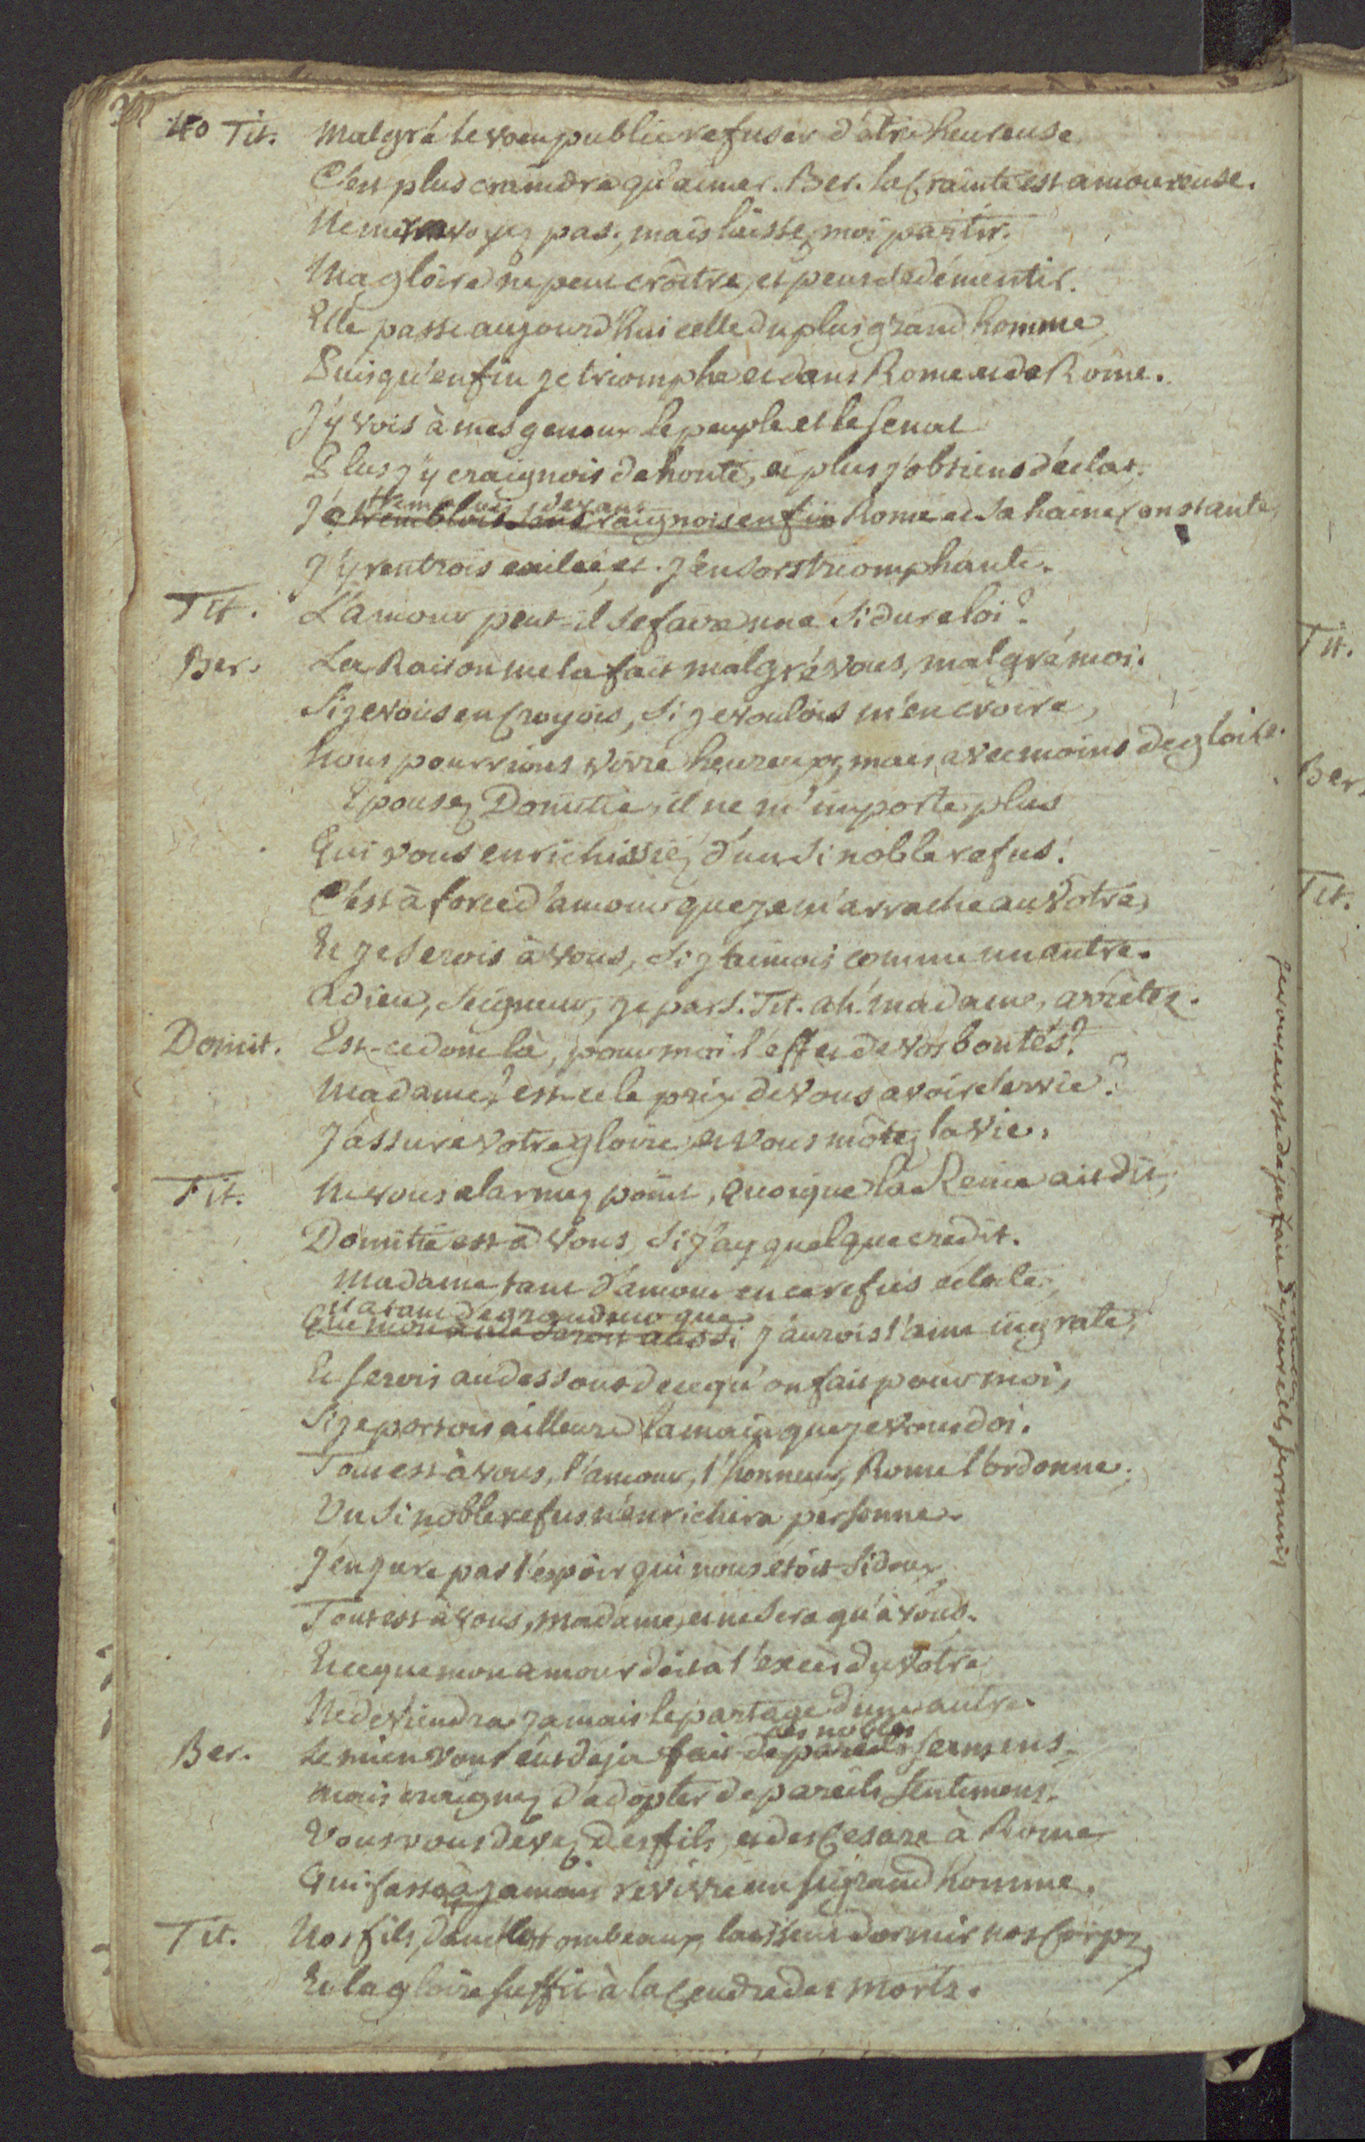 40 Tit. Malgré le voeu public refuser d'être heureuse
C'est plus craindre qu'aimer. Ber. la Crainte est amoureuse.
Ne me renvoyez pas; mais laissez moi partir.
Ma gloire ne peut croître, et peut se démentir.
Elle passe aujourd'hui celle du plus grand homme,
Puisqu'enfin je triomphe et dans Rome et de Rome.
J'y vois à mes genoux le peuple et le senat
Plus j'y craignois de honte, et plus j'obtiens d'éclat.
J'y tremblois sous
craignois enfin Rome et sa haine Constante,
J'y rentrois exilée, et j'en sors triomphante.
Tit. L'amour peut-il se faire une si dure loi?
Ber. La Raison me la fait malgré vous, malgré moi.
Si je vous en Croyois, si je voulois m'en croire,
Nous pourrions vivre heureux, mais avec moins de gloire.
Epousez Domitie, il ne m'importe plus
Qui vous enrichissiez d'un si noble refus.
C'est à force d'amour que je m'arrache au Votre,
Et je serois à vous, si j'aimois comme une autre.
adieu, Seigneur, je pars. Tit. ah! madame, arrêtez.
Domit. Est-ce donc là, pour moi l'effet de vos bontés?
Madame? est-ce le prix de vous avoir servie?
J'assure votre gloire et vous m'ôtez la vie.
Tit. Ne vous alarmez point, quoique la Reine ait dit,
Domitie est à Vous, si j'ay quelque credit.
Madame, tant d'amour en ce refus eclate,
et a tant de grandeur que
Que mon ame seroit aussi j'aurois l'ame ingrate,
Et serois au dessous de ce qu'on fait pour moi,
Si je portois ailleurs la main que je vous doi.
Tout est à vous, l'amour, l'honneur, Rome l'ordonne.
Un si noble refus n'enrichira personne.
J'en jure par l'espoir qui nous étoit si doux,
Tout est à vous, Madame, et ne sera qu'à vous.
Et ce que mon amour doit à l'excès du Votre
Ne deviendra jamais le partage d'une autre.
ces nobles
Ber. Le mien vous eût deja fait de pareils sermens.
mais craignez d'adopter de pareils Sentimens.
Vous vous devez des fils, et des Cesars à Rome,
Qui fasse à jamais revivre un si grand homme.
Tit. Nos fils dans les tombeaux laissent dormir nos Corps,
Et la gloire suffit à la Cendre des morts.
je vous eusse deja fait de pareils sermens
Tit.
Ber.
Tit.